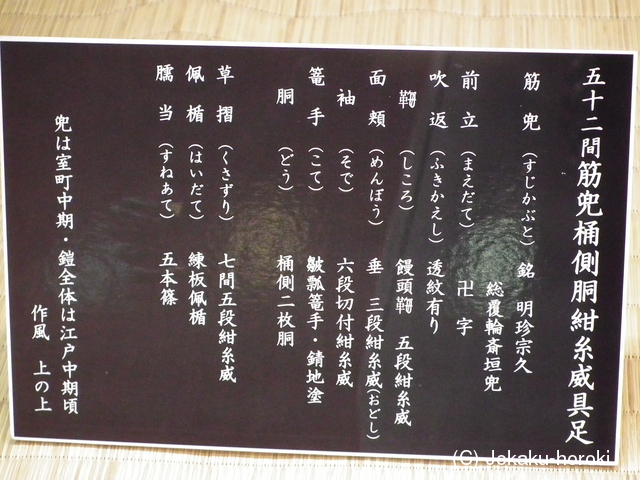 五十二間筋兜桶側胴紺糸威具足
筋兜（すじかぶと）銘 明珍宗久
総覆輪斎垣兜
前立（まえだて）卍字
吹返（ふきかえし）透紋有り
𩊱（しころ）饅頭𩊱 五段紺糸威
面頬（めんぽう）垂 三段紺糸威（おどし）
袖（そで）六段切付紺糸威
篭手（こて）皺瓢篭手・錆地塗
胴（どう）桶側二枚胴
草摺（くさずり）七間五段紺糸威
佩楯（はいだて）練板佩楯
臑当（すねあて）五本篠
兜は室町中期・鎧全体は江戸中期頃
作風 上の上
(C) Jokaku-horoki